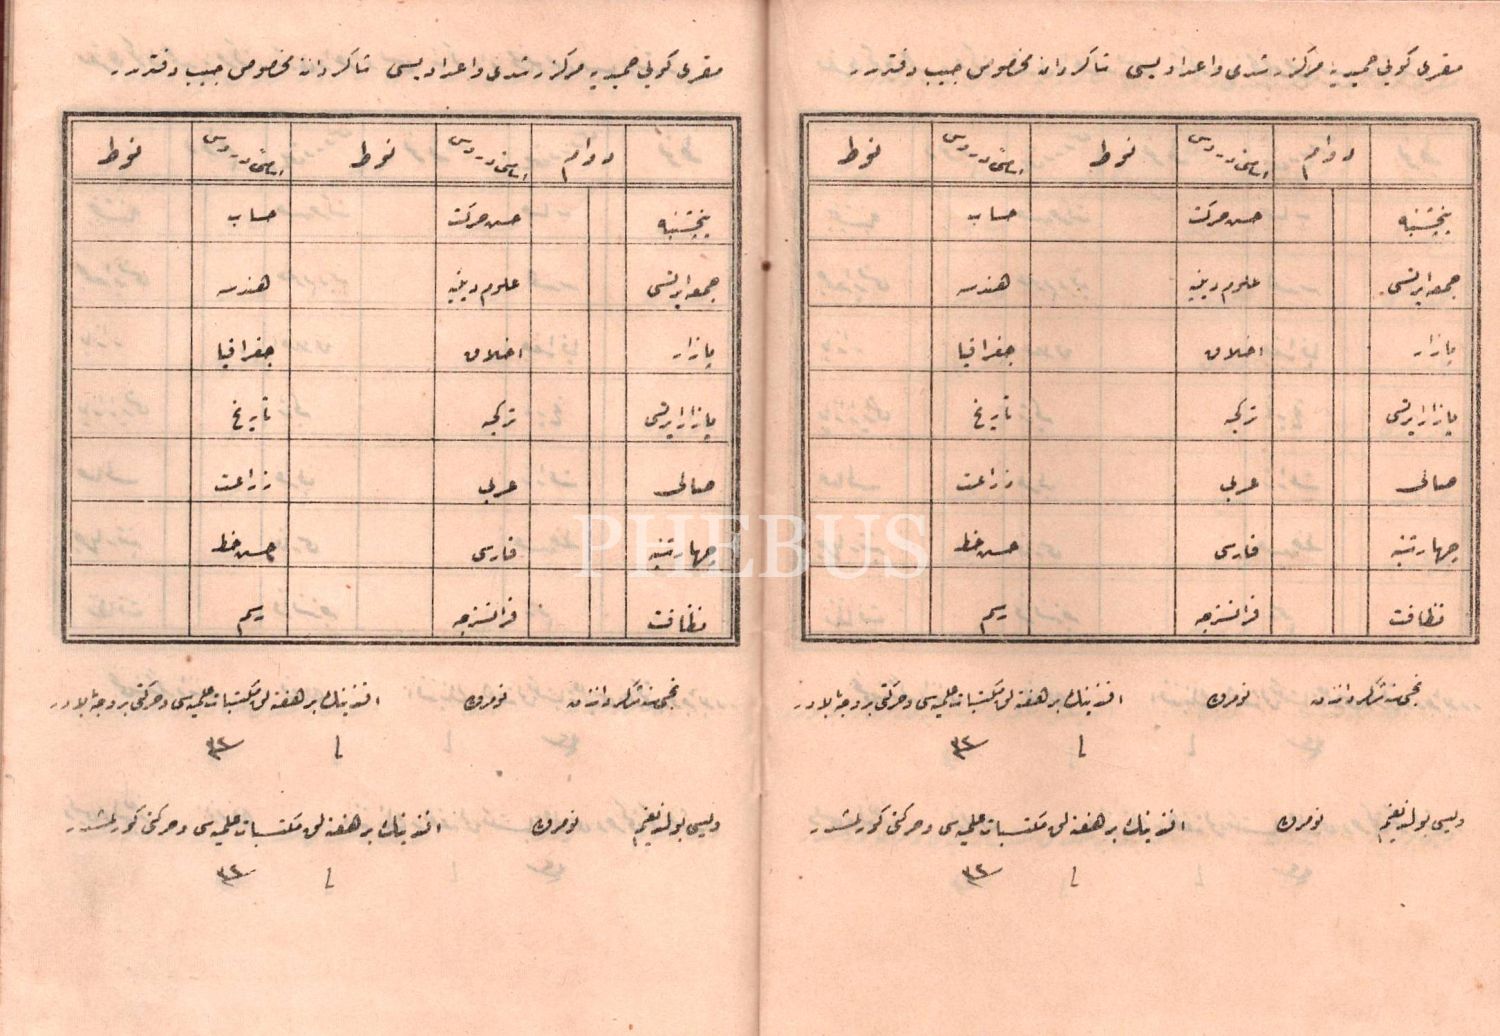 مقری کویی حمیدیه مرکز رشدی و اعدادیسی شاکردانه مخصوص جیب دفتریدر
دوام اسامئ دروس نوط اسامئ دروس نوط
پنجشنبه حسن حرکت حساب
جمعه ایرتسی علوم دینیه هندسه
بازار اخلاق جغرافیا
بازار ایرتسی ترکجه تاریخ
صالی عربی زراعت
چهارشنبه فارسی حسن خط
نظافت فرانسزجه رسم
نجی صنف شاکرداندن نومرولی افندینك بر هفته لق مکتسبات علمیه سی و حرکتی بروجه بالادر
فی سنه ٣٢
ولیسی بولندیغم نومرولی افندینك بر هفته لق مکتسبات علمیه سی و حرکتی کورلمشدر
فی سنه ٣٢
مقری کویی حمیدیه مرکز رشدی و اعدادیسی شاکردانه مخصوص جیب دفتریدر
دوام اسامئ دروس نوط اسامئ دروس نوط
پنجشنبه حسن حرکت حساب
جمعه ایرتسی علوم دینیه هندسه
بازار اخلاق جغرافیا
بازار ایرتسی ترکجه تاریخ
صالی عربی زراعت
چهارشنبه فارسی حسن خط
نظافت فرانسزجه رسم
نجی صنف شاکرداندن نومرولی افندینك بر هفته لق مکتسبات علمیه سی و حرکتی بروجه بالادر
فی سنه ٣٢
ولیسی بولندیغم نومرولی افندینك بر هفته لق مکتسبات علمیه سی و حرکتی کورلمشدر
فی سنه ٣٢
PHEBUS